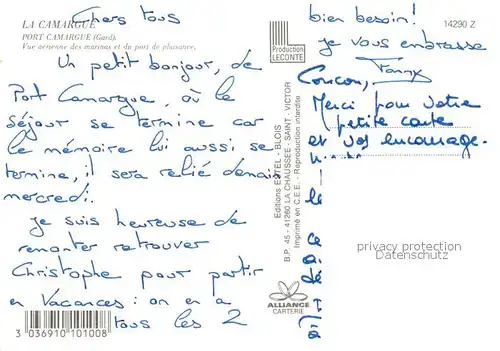 LA CAMARGUE
PORT CAMARGUE (Gard).
Vue aérienne des marinas et du port de plaisance.
Chers tous
Un petit bonjour, de
Port Camargue, où le
séjour se termine car
le mémoire lui aussi se
termine, il sera relié demain
mercredi.
Je suis heureuse de
remonter retrouver
Christophe pour partir
en Vacances : on en a
tous les 2
3 036910 101008
Production
LECONTE
Editions ESTEL - BLOIS
B.P. 45 - 41260 LA CHAUSSEE - SAINT - VICTOR
Imprimé en C.E.E. - Reproduction interdite
ALLIANCE
CARTERIE
14290 Z
bien besoin!
je vous embrasse
Fanny
Coucou,
Merci pour votre
petite carte
et vos encourage-
privacy protection
Datenschutz